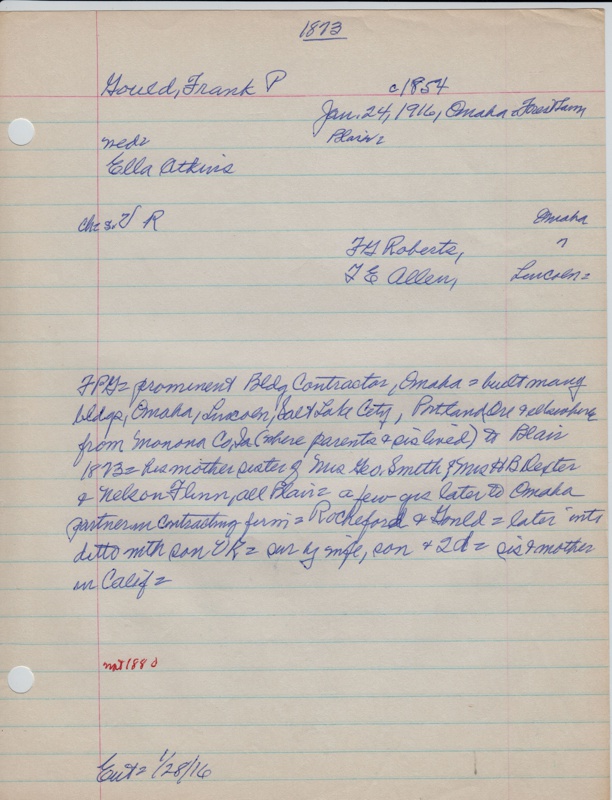 1873
Gould, Frank P c1854
Jan. 24, 1916, Omaha Forest Lawn
med= Blair=
Ella Atkins
ch= s. V R Omaha
F G Roberts, "
F E Allen, Lincoln=
FPG= prominent Bldg Contractor, Omaha = built many
bldgs, Omaha, Lincoln, Salt Lake City, Portland Ore & elsewhere
from Monona Co, Ia (where parents & sis lived) to Blair
1873= his mother sister of Mrs Geo. Smith & Mrs H B Dexter
& Nelson Flinn, all Blair= a few yrs later to Omaha
partner in contracting firm = Rocheford & Gould = later into
ditto with son VR= sur by wife, son & 2d= sis & mother
in Calif=
not 1880
Ent= 1/28/16